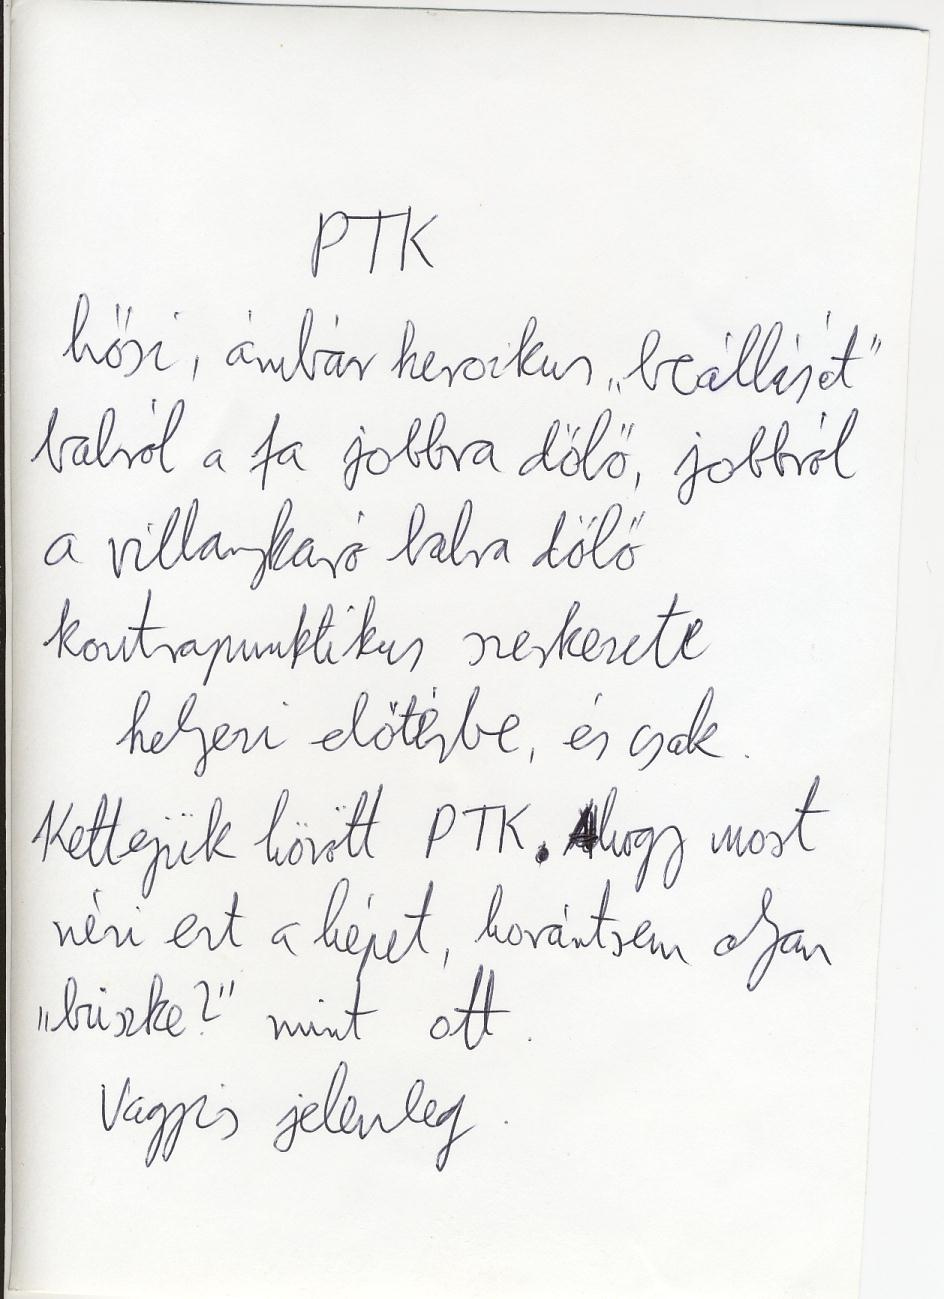 PTK
hősi, ámbár heroikus „beállását"
balról a fa jobbra dőlő, jobbról
a villanykaró balra dőlő
kontrapunktikus szerkezete
helyezi előtérbe, és csak.
Kettejük között PTK. Ahogy most
nézi ezt a képet, korántsem olyan
„büszke?" mint ott.
Vagyis jelenleg.